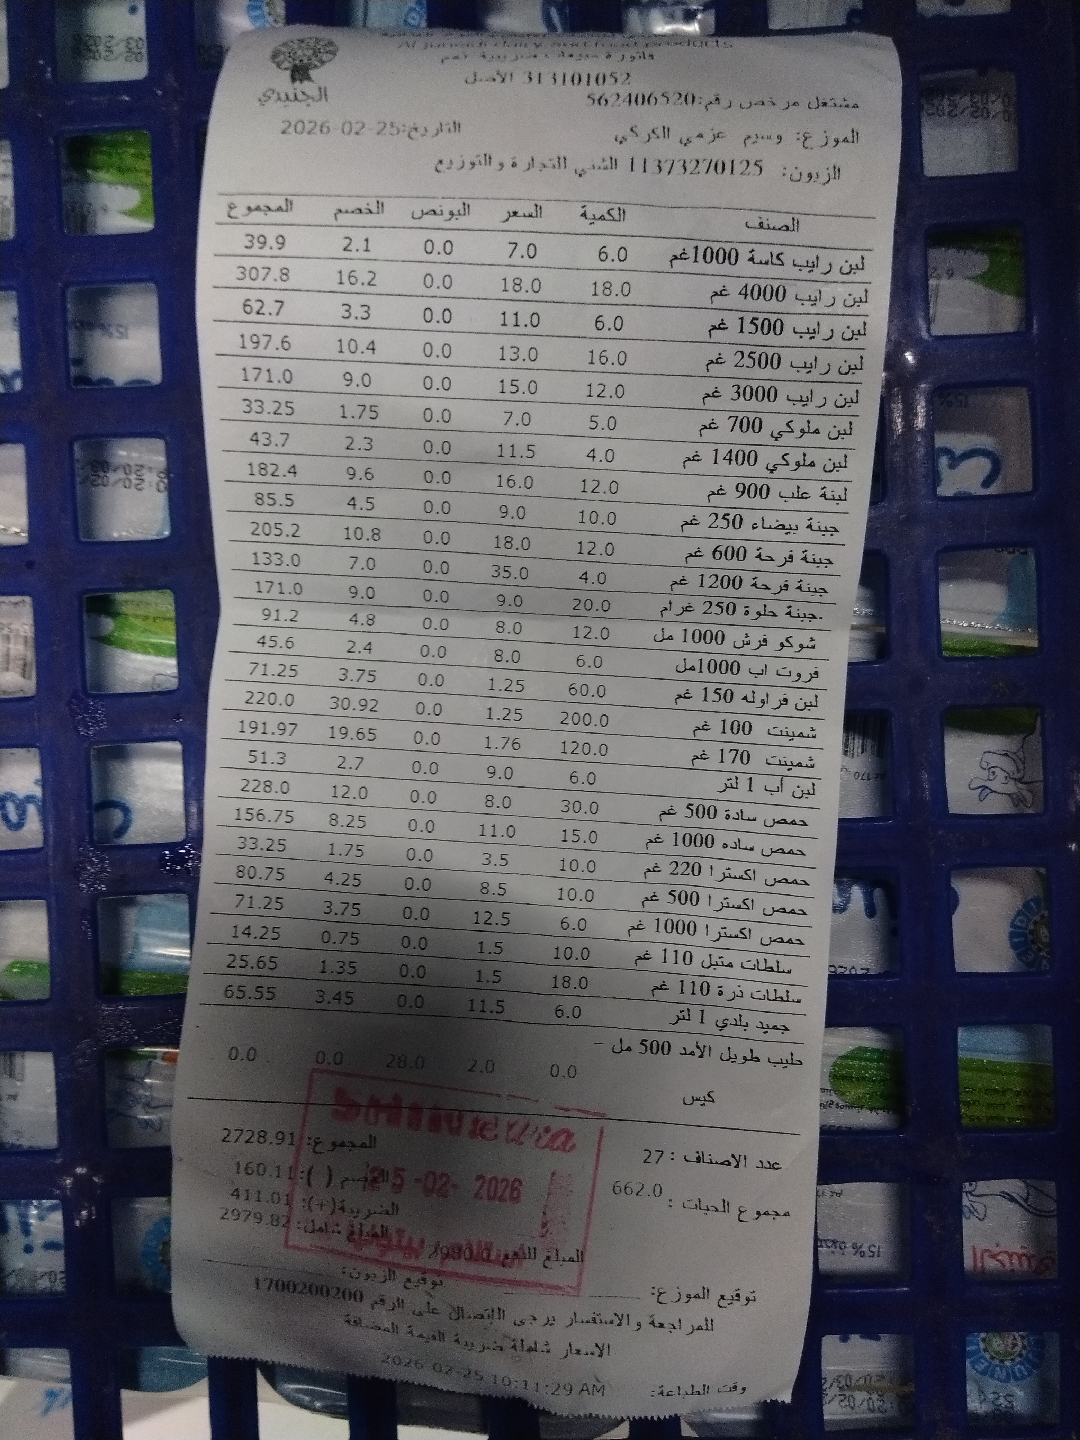 Al Juneidi dairy and food products
فاتورة مبيعات ضريبية
الأصل 313101052
الجنيدي
مشتغل مرخص رقم:562406520
الموزع: وسيم عزمي الكركي التاريخ:2026-02-25
الزبون: 11373270125 الشني للتجارة والتوزيع
الصنف الكمية السعر البونص الخصم المجموع
لبن رايب كاسة 1000غم 6.0 7.0 0.0 2.1 39.9
لبن رايب 4000 غم 18.0 18.0 0.0 16.2 307.8
لبن رايب 1500 غم 6.0 11.0 0.0 3.3 62.7
لبن رايب 2500 غم 16.0 13.0 0.0 10.4 197.6
لبن رايب 3000 غم 12.0 15.0 0.0 9.0 171.0
لبن ملوكي 700 غم 5.0 7.0 0.0 1.75 33.25
لبن ملوكي 1400 غم 4.0 11.5 0.0 2.3 43.7
لبنة علب 900 غم 12.0 16.0 0.0 9.6 182.4
جبنة بيضاء 250 غم 10.0 9.0 0.0 4.5 85.5
جبنة فرحة 600 غم 12.0 18.0 0.0 10.8 205.2
جبنة فرحة 1200 غم 4.0 35.0 0.0 7.0 133.0
جبنة حلوة 250 غرام. 20.0 9.0 0.0 9.0 171.0
شوكو فرش 1000 مل 12.0 8.0 0.0 4.8 91.2
فروت اب 1000مل 6.0 8.0 0.0 2.4 45.6
لبن فراوله 150 غم 60.0 1.25 0.0 3.75 71.25
شمينت 100 غم 200.0 1.25 0.0 30.92 220.0
شمينت 170 غم 120.0 1.76 0.0 19.65 191.97
لبن أب 1 لتر 6.0 9.0 0.0 2.7 51.3
حمص سادة 500 غم 30.0 8.0 0.0 12.0 228.0
حمص ساده 1000 غم 15.0 11.0 0.0 8.25 156.75
حمص اكسترا 220 غم 10.0 3.5 0.0 1.75 33.25
حمص اكسترا 500 غم 10.0 8.5 0.0 4.25 80.75
حمص اكسترا 1000 غم 6.0 12.5 0.0 3.75 71.25
سلطات متبل 110 غم 10.0 1.5 0.0 0.75 14.25
سلطات ذرة 110 غم 18.0 1.5 0.0 1.35 25.65
جميد بلدي 1 لتر 6.0 11.5 0.0 3.45 65.55
حليب طويل الأمد 500 مل -
كيس 0.0 2.0 28.0 0.0 0.0
عدد الاصناف : 27 المجموع: 2728.91
مجموع الحبات : 662.0 الخصم ( ): 160.11
الضريبة(+): 411.01
المبلغ شامل: 2979.82
25-02-2026
المبلغ للدفع
توقيع الموزع: توقيع الزبون:
للمراجعة والاستفسار يرجى الاتصال على الرقم 1700200200
الاسعار شاملة ضريبة القيمة المضافة
وقت الطباعة: 2026-02-25 10:11:29 AM